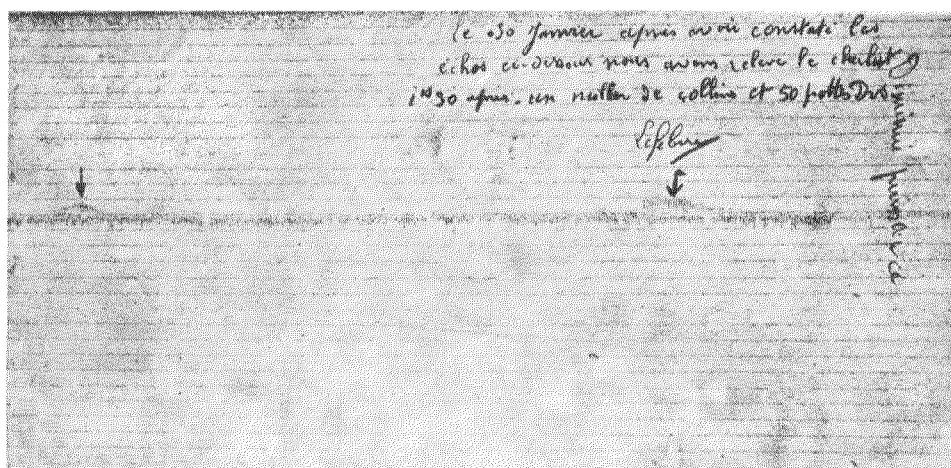 Le 30 Janvier après avoir constaté les
échos ci-dessous nous avons relevé le chalut
1h30 après. un millier de collins et 50 pottes Divs
Lefebvre
mini puissance